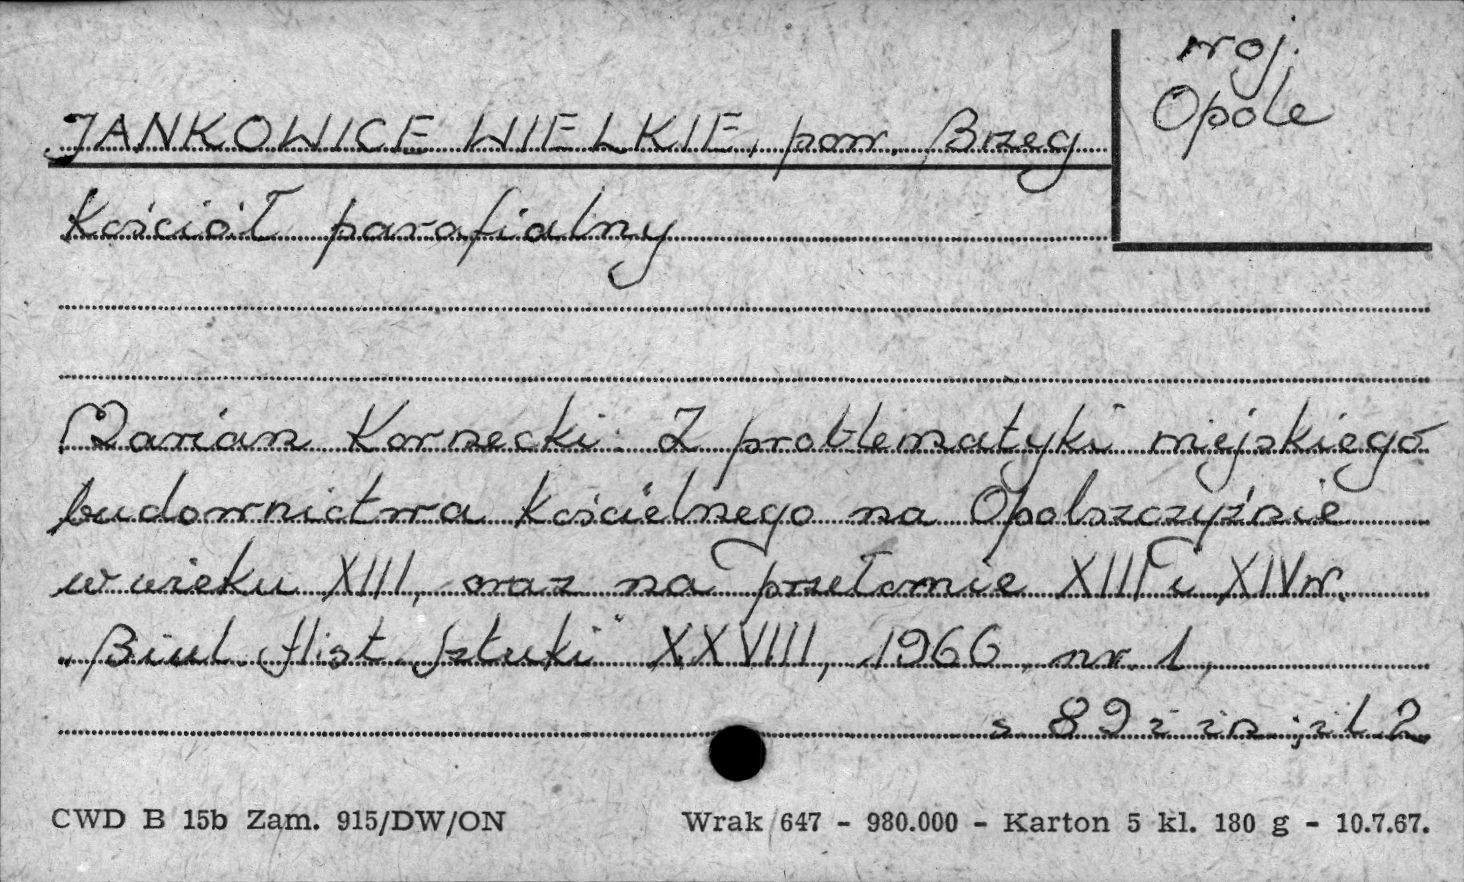 woj.
Opole
JANKOWICE WIELKIE, pow. Brzeg
Kościół parafialny
Marian Kornecki: Z problematyki miejskiego
budownictwa kościelnego na Opolszczyźnie
w wieku XIII, oraz na przełomie XIII i XIV w.
"Biul. Hist. Sztuki" XXVIII, 1966, nr. 1,
s 89 i in ; il. 2
CWD B 15b Zam. 915/DW/ON Wrak 647 - 980.000 - Karton 5 kl. 180 g - 10.7.67.